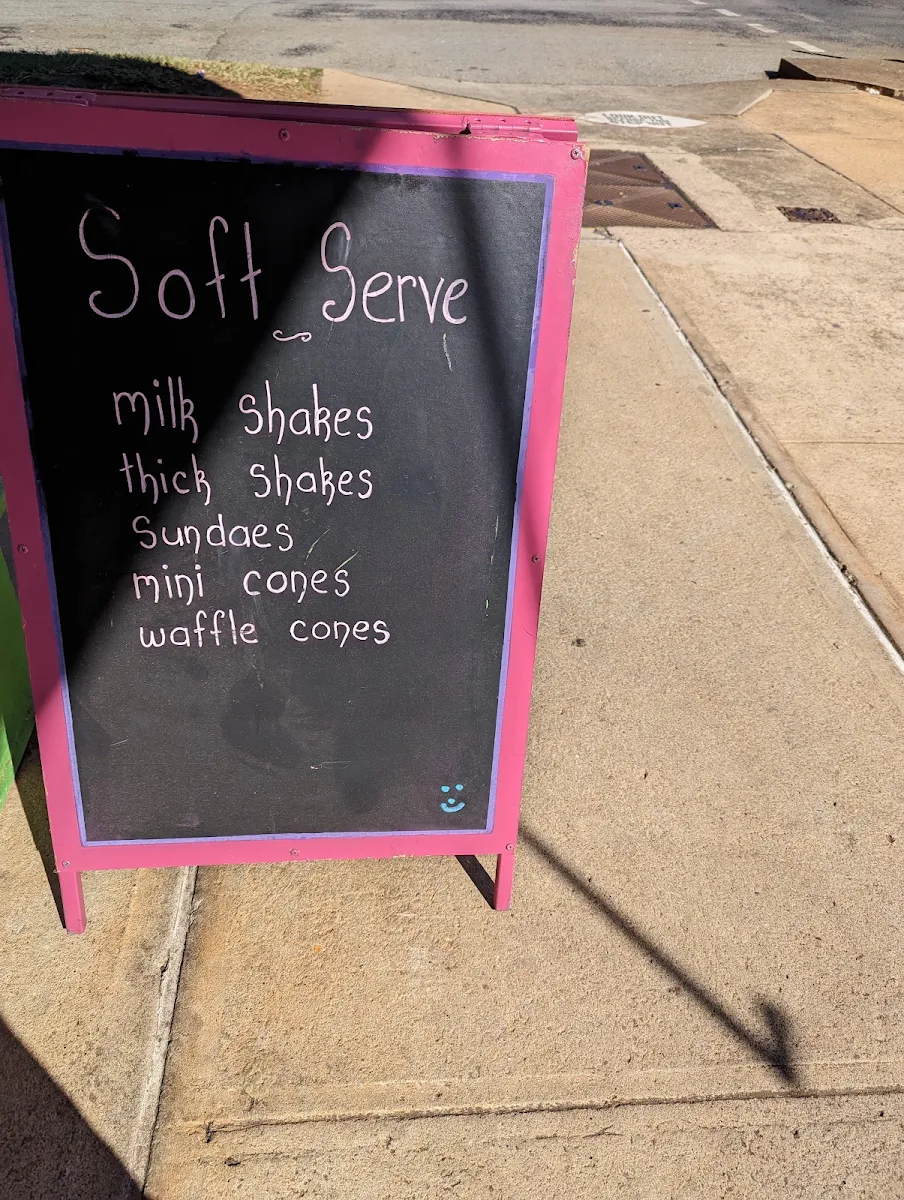 Soft Serve
milk shakes
thick shakes
Sundaes
mini cones
waffle cones